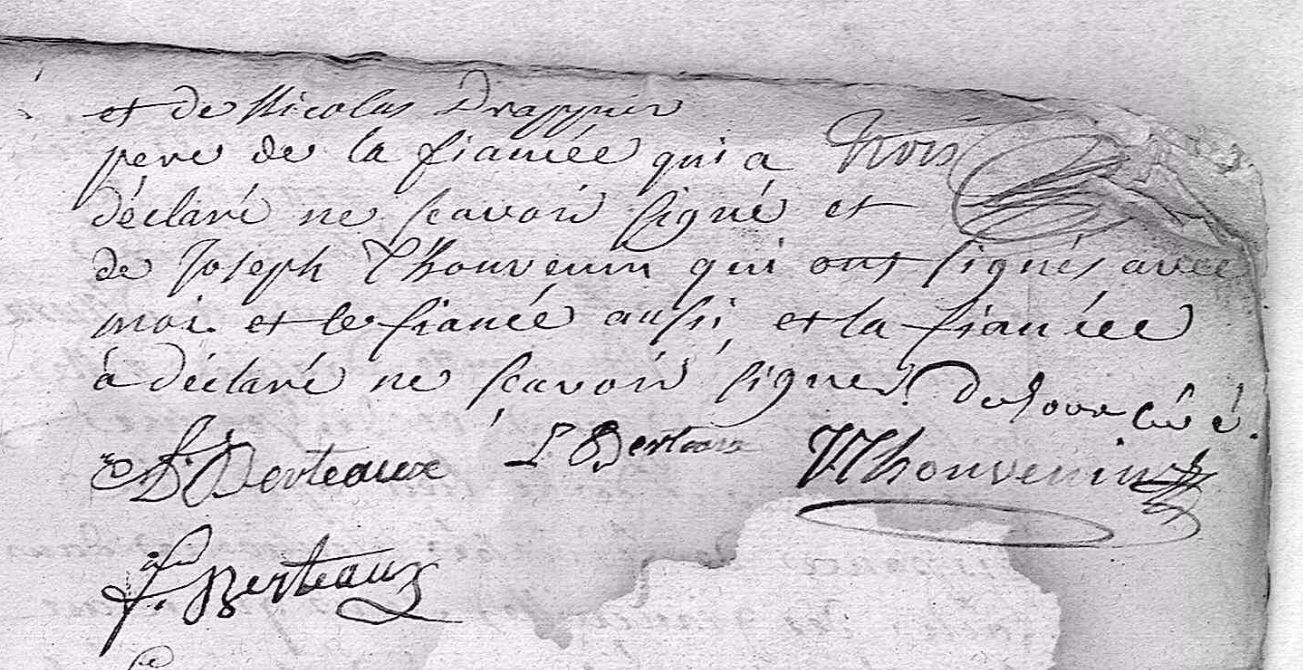 et de Nicolas Drappier
pere de la fiancée qui a trois
déclaré ne scavoir signé et
de Joseph Thouvenin qui ont signés avec
moi. et le fiancé aussi et la fiancée
à déclaré ne scavoir signer. curé.
Berteaux L Berteaux Thouvenin
f. Berteaux